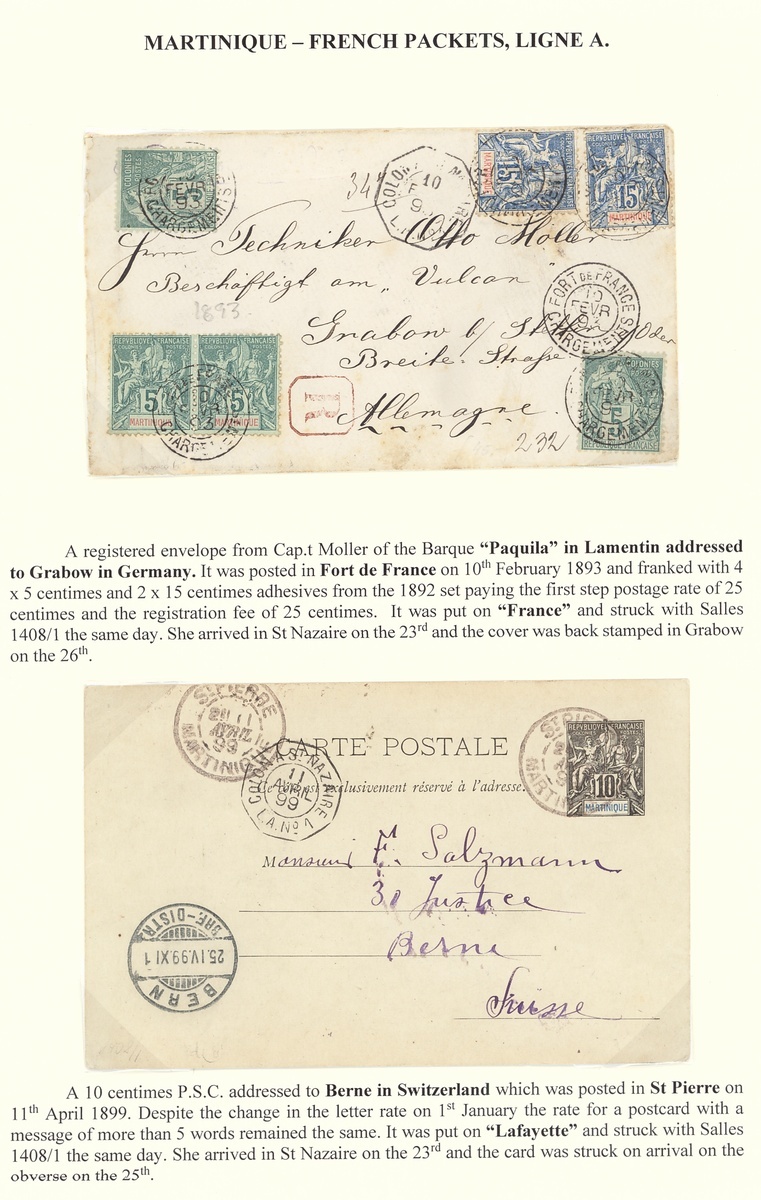 MARTINIQUE – FRENCH PACKETS, LIGNE A.
COLONIES
FEVR
93
CHARGEMENTS
34
10
L.A.N
15
MARTINIQUE
REPUBLIQUE FRANÇAISE
COLONIES POSTES
15
MARTINIQUE
Herrn Techniker Otto Moller
Beschäftigt am „Vulcan"
1893
FORT DE FRANCE
10
FEVR
93
CHARGEMENTS
Grabow b/ Stettin Oder
Breite-Strasse
Allemagne.
REPUBLIQUE FRANÇAISE REPUBLIQUE FRANÇAISE
COLONIES POSTES COLONIES POSTES
5 5
MARTINIQUE MARTINIQUE
93
CHARGEMENTS
R
232
COLONIES
CHARGEMENTS
REPUBLIQUE FRANÇAISE
A registered envelope from Cap.t Moller of the Barque “Paquila” in Lamentin addressed
to Grabow in Germany. It was posted in Fort de France on 10th February 1893 and franked with 4
x 5 centimes and 2 x 15 centimes adhesives from the 1892 set paying the first step postage rate of 25
centimes and the registration fee of 25 centimes.  It was put on “France” and struck with Salles
1408/1 the same day. She arrived in St Nazaire on the 23rd and the cover was back stamped in Grabow
on the 26th.
ST PIERRE
11
AVRIL
99
MARTINIQUE
CARTE POSTALE
Ce côté est exclusivement réservé à l'adresse.
COLON. A ST NAZAIRE
11
AVRIL
99
L.A. No 1
ST PIERRE
MARTINIQUE
REPUBLIQUE FRANÇAISE
COLONIES POSTES
10
MARTINIQUE
Monsieur F. Salzmann
30 Justice
Berne
Suisse
BERN
25.IV.99.XI 1
BRF-DISTR.
A 10 centimes P.S.C. addressed to Berne in Switzerland which was posted in St Pierre on
11th April 1899. Despite the change in the letter rate on 1st January the rate for a postcard with a
message of more than 5 words remained the same. It was put on “Lafayette” and struck with Salles
1408/1 the same day. She arrived in St Nazaire on the 23rd and the card was struck on arrival on the
obverse on the 25th.